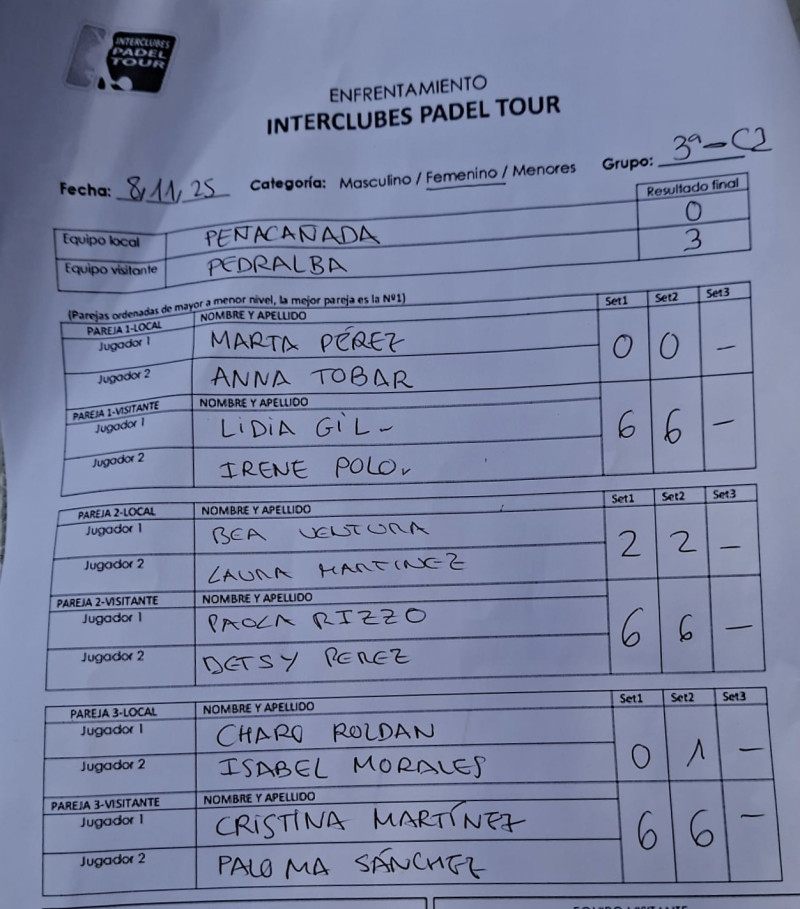 INTERCLUBES
PADEL
TOUR
ENFRENTAMIENTO
INTERCLUBES PADEL TOUR
Fecha: 8,11,25 Categoría: Masculino / Femenino / Menores Grupo: 3ª-C2
Resultado final
Equipo local PEÑACAÑADA 0
Equipo visitante PEDRALBA 3
(Parejas ordenadas de mayor a menor nivel, la mejor pareja es la Nº1)
PAREJA 1-LOCAL NOMBRE Y APELLIDO Set1 Set2 Set3
Jugador 1 MARTA PÉREZ 0 0 -
Jugador 2 ANNA TOBAR
PAREJA 1-VISITANTE NOMBRE Y APELLIDO
Jugador 1 LIDIA GIL- 6 6 -
Jugador 2 IRENE POLO.
PAREJA 2-LOCAL NOMBRE Y APELLIDO Set1 Set2 Set3
Jugador 1 BEA VENTURA 2 2 -
Jugador 2 LAURA MARTINEZ
PAREJA 2-VISITANTE NOMBRE Y APELLIDO
Jugador 1 PAOLA RIZZO 6 6 -
Jugador 2 DETSY PEREZ
PAREJA 3-LOCAL NOMBRE Y APELLIDO Set1 Set2 Set3
Jugador 1 CHARO ROLDAN 0 1 -
Jugador 2 ISABEL MORALES
PAREJA 3-VISITANTE NOMBRE Y APELLIDO
Jugador 1 CRISTINA MARTÍNEZ 6 6 -
Jugador 2 PALOMA SÁNCHEZ